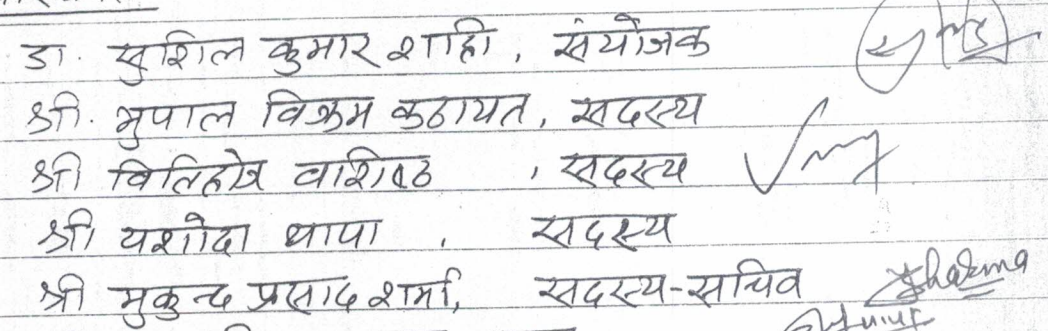 डा. सुशिल कुमार शाही, संयोजक
श्री. भुपाल विक्रम कठायत, सदस्य
श्री वितिहोत्र वाशिष्ठ , सदस्य
श्री यशोदा थापा , सदस्य
श्री मुकुन्द प्रसाद शर्मा, सदस्य-सचिव
Sharma